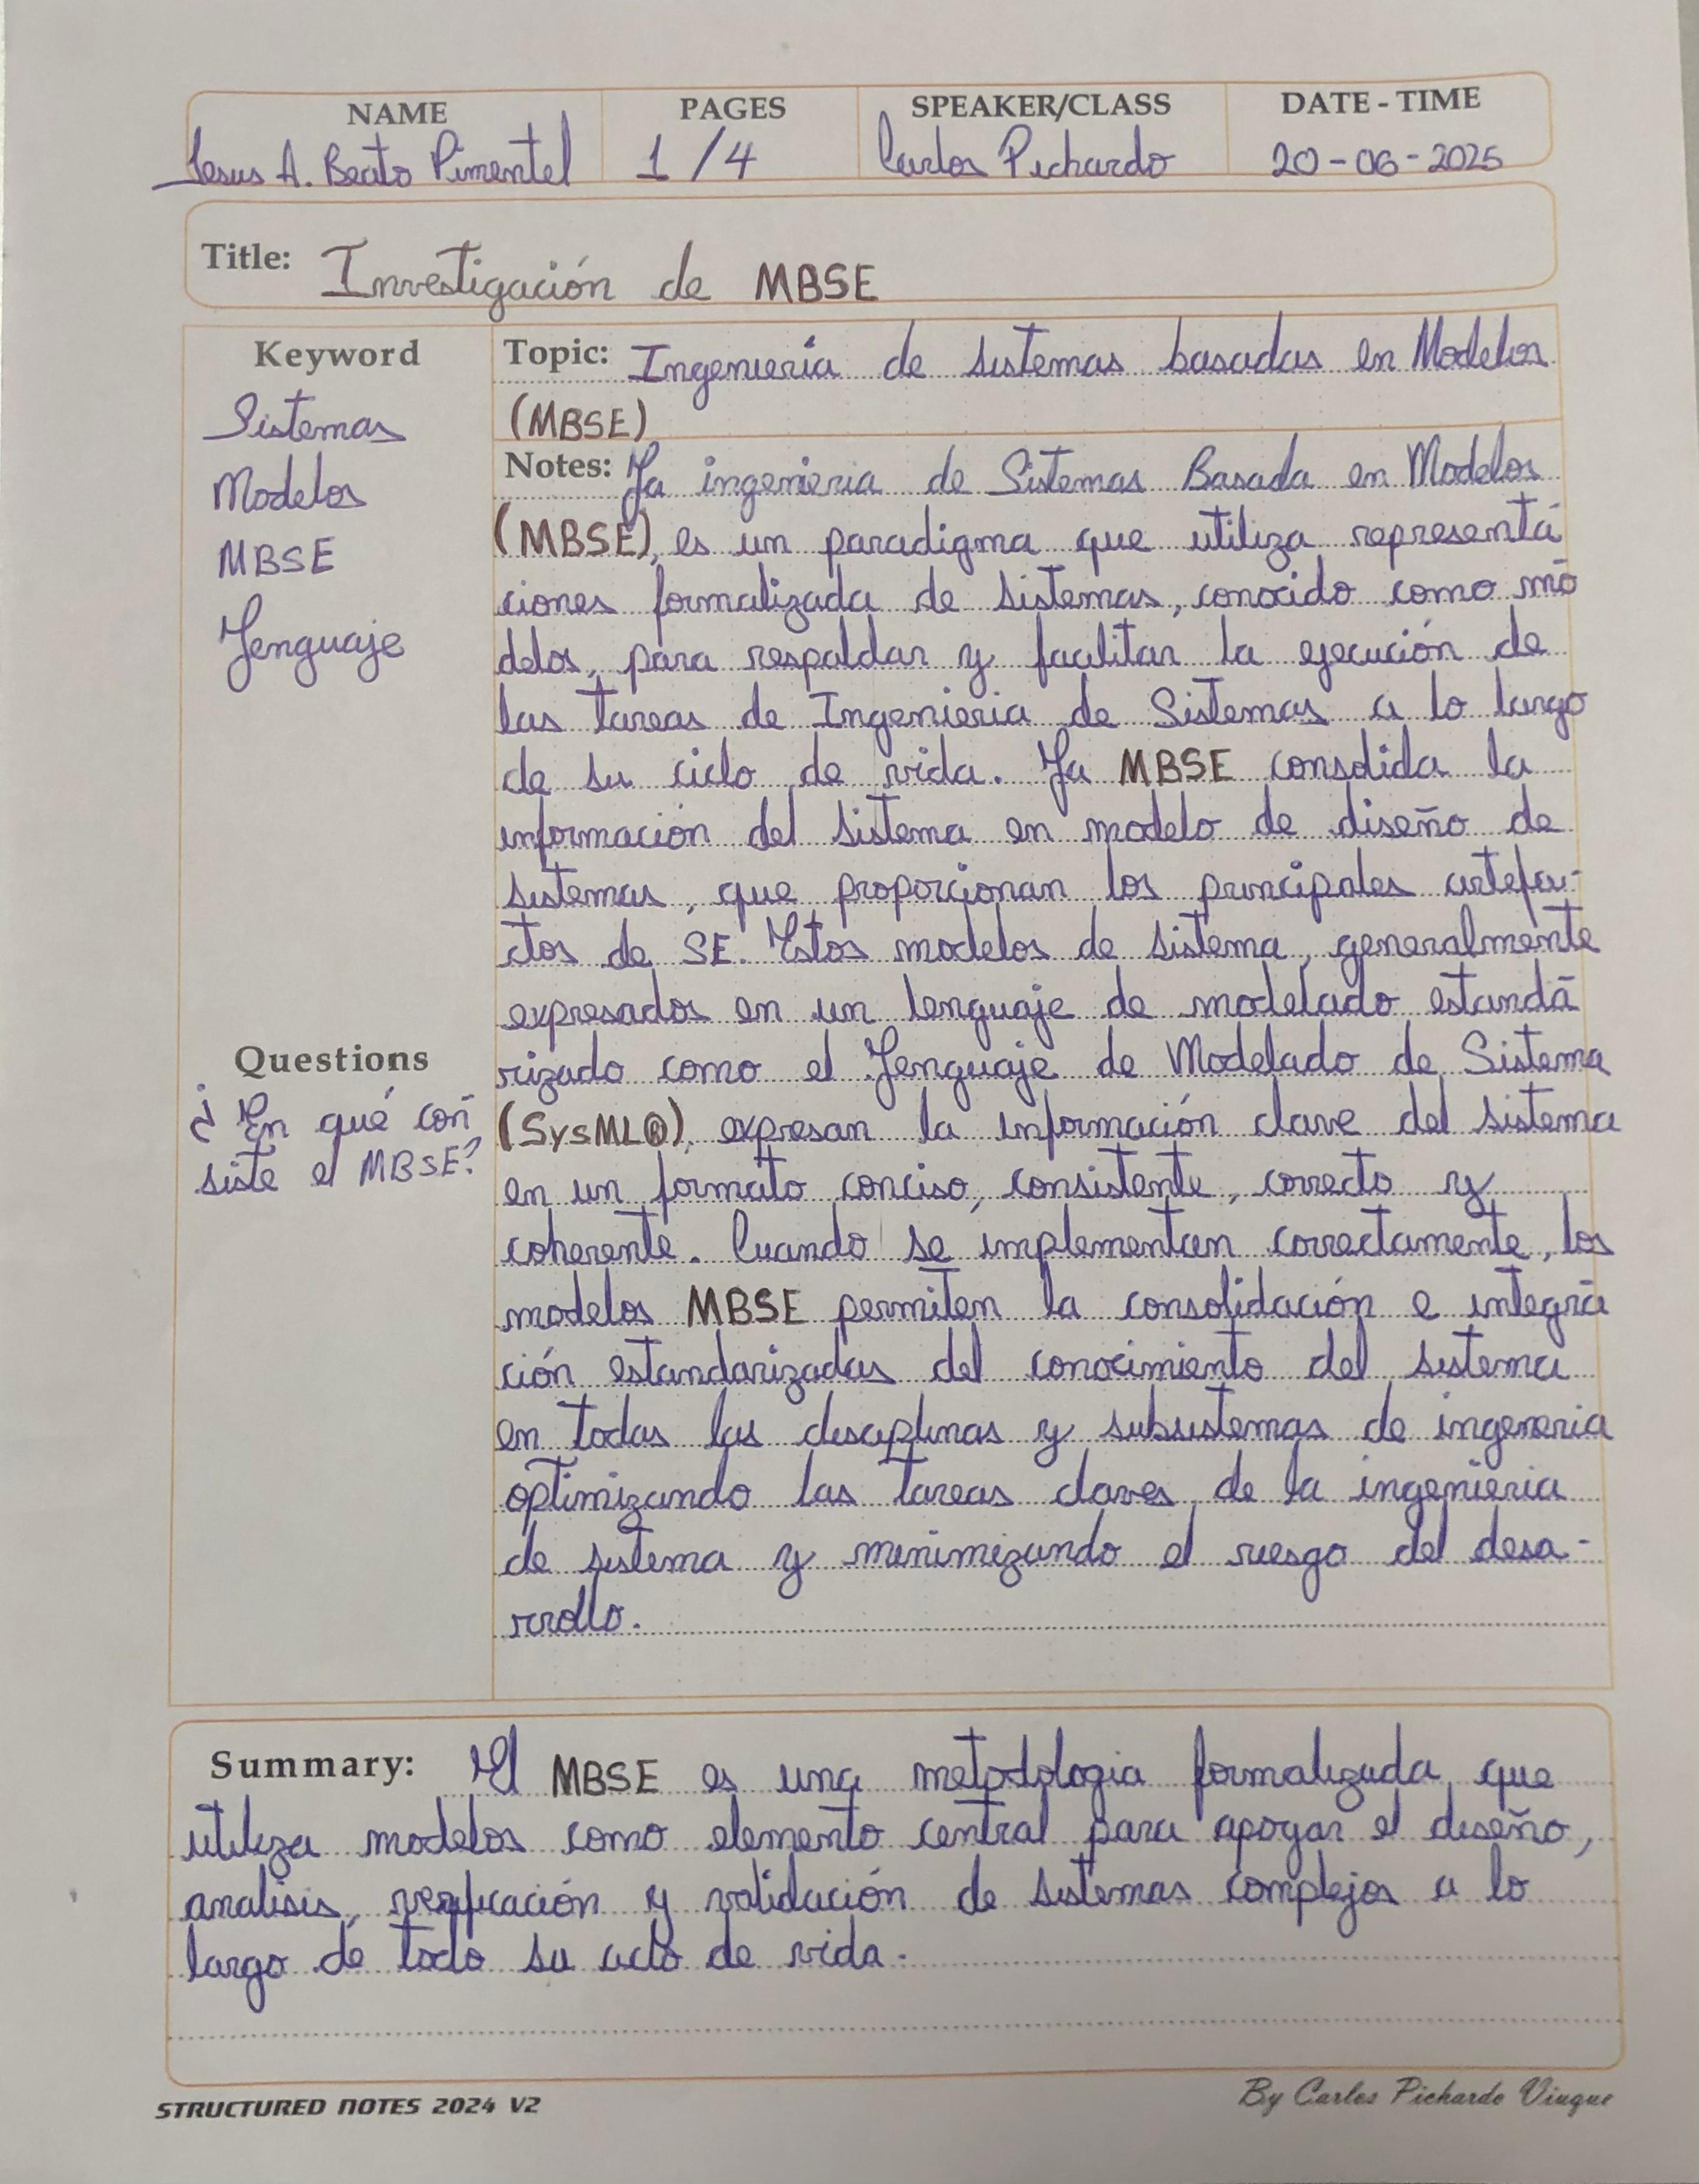 NAME PAGES SPEAKER/CLASS DATE - TIME
Jesus A. Beato Pimentel 1/4 Carlos Pichardo 20-06-2025
Title: Investigación de MBSE
Keyword
Sistemas
Modelos
MBSE
Lenguaje
Questions
¿En qué con
siste el MBSE?
Topic: Ingeniería de sistemas basadas en Modelos
(MBSE)
Notes: La ingenieria de Sistemas Basada en Modelos
(MBSE), es un paradigma que utiliza representa
ciones formalizada de sistemas, conocido como mo
delos, para respaldar y facilitar la ejecución de
las tareas de Ingenieria de Sistemas a lo largo
de su ciclo de vida. La MBSE consolida la
información del sistema en modelo de diseño de
sistemas, que proporcionan los principales artefa-
ctos de SE. Estos modelos de sistema, generalmente
expresados en un lenguaje de modelado estanda
rizado como el Lenguaje de Modelado de Sistema
(SysML®), expresan la información clave del sistema
en un formato conciso, consistente, correcto y
coherente. Cuando se implementan correctamente, los
modelos MBSE permiten la consolidación e integra
ción estandarizadas del conocimiento del sistema
en todas las disciplinas y subsistemas de ingeneria
optimizando las tareas claves de la ingenieria
de sistema y minimizando el riesgo del desa-
rrollo.
Summary: El MBSE es una metodologia formalizada que
utiliza modelos como elemento central para apoyar el diseño,
analisis, verificación y validación de sistemas complejos a lo
largo de todo su ciclo de vida.
STRUCTURED NOTES 2024 V2 By Carlos Pichardo Viuque